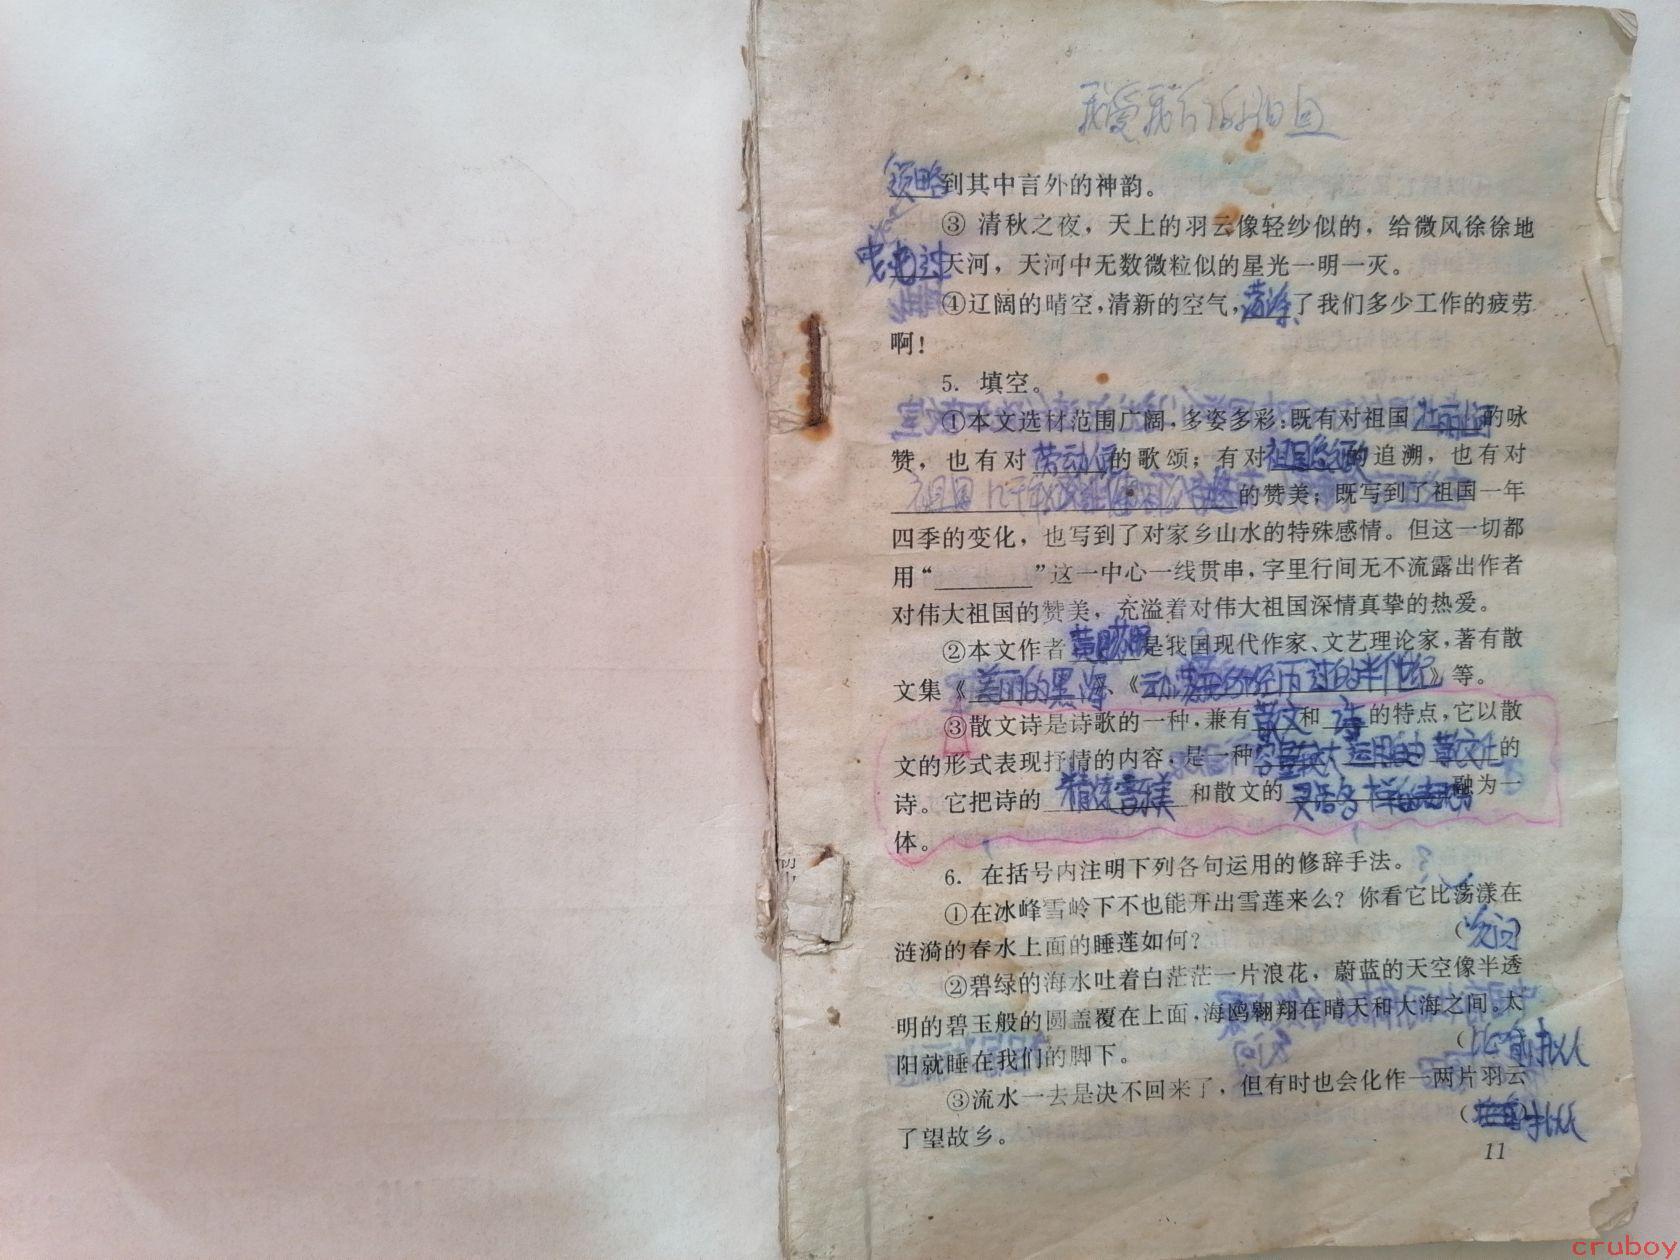 我爱我们的祖国
领略到其中言外的神韵。
③ 清秋之夜，天上的羽云像轻纱似的，给微风徐徐地
天河，天河中无数微粒似的星光一明一灭。
④辽阔的晴空，清新的空气，荡涤了我们多少工作的疲劳
啊！
5. 填空。
①本文选材范围广阔，多姿多彩：既有对祖国 的咏
赞，也有对 劳动 的歌颂；有对 祖国 的追溯，也有对
的赞美；既写到了祖国一年
四季的变化，也写到了对家乡山水的特殊感情。但这一切都
用“ ”这一中心一线贯串，字里行间无不流露出作者
对伟大祖国的赞美，充溢着对伟大祖国深情真挚的热爱。
②本文作者 黄 是我国现代作家、文艺理论家，著有散
文集《美丽的黑海》、《动荡 的半世纪》等。
③散文诗是诗歌的一种，兼有 散文 和 诗 的特点，它以散
文的形式表现抒情的内容，是一种 容量较大 运用自由 散文化 的
诗。它把诗的 精炼 和散文的 融为一
体。
6. 在括号内注明下列各句运用的修辞手法。
①在冰峰雪岭下不也能开出雪莲来么？你看它比荡漾在
涟漪的春水上面的睡莲如何？ （反问）
②碧绿的海水吐着白茫茫一片浪花，蔚蓝的天空像半透
明的碧玉般的圆盖覆在上面，海鸥翱翔在晴天和大海之间。太
阳就睡在我们的脚下。 （比喻 拟人
③流水一去是决不回来了，但有时也会化作一两片羽云
了望故乡。 （ 拟人
11
cruboy